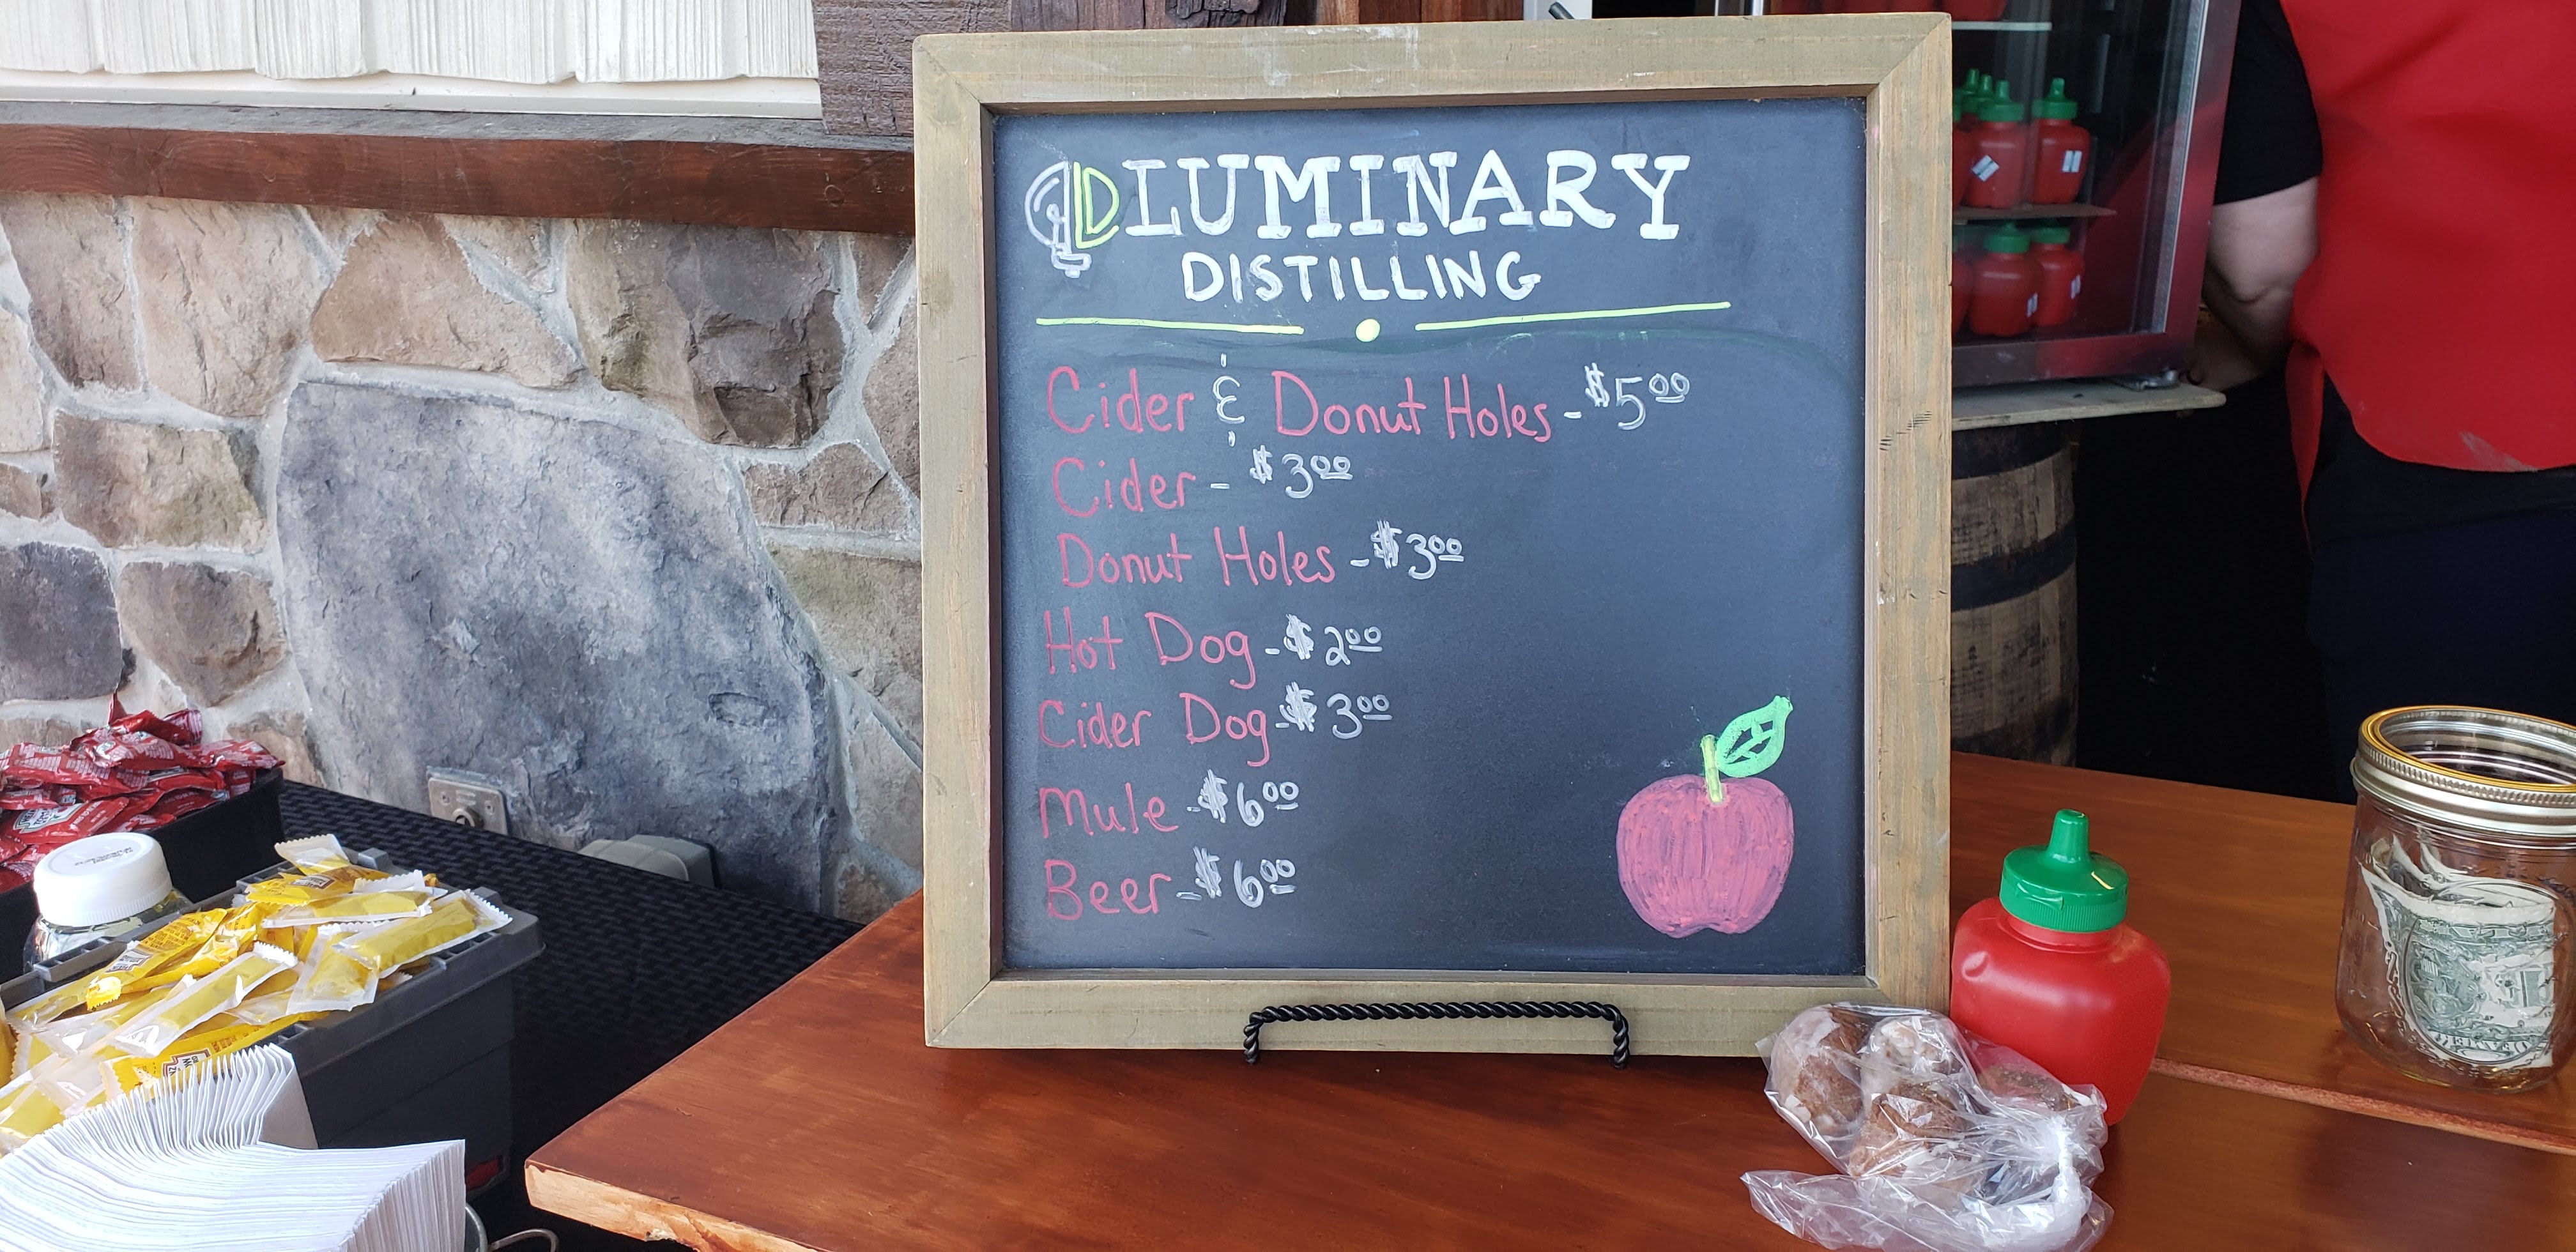 LD LUMINARY
DISTILLING
Cider & Donut Holes - $5.00
Cider - $3.00
Donut Holes - $3.00
Hot Dog - $2.00
Cider Dog - $3.00
Mule - $6.00
Beer - $6.00